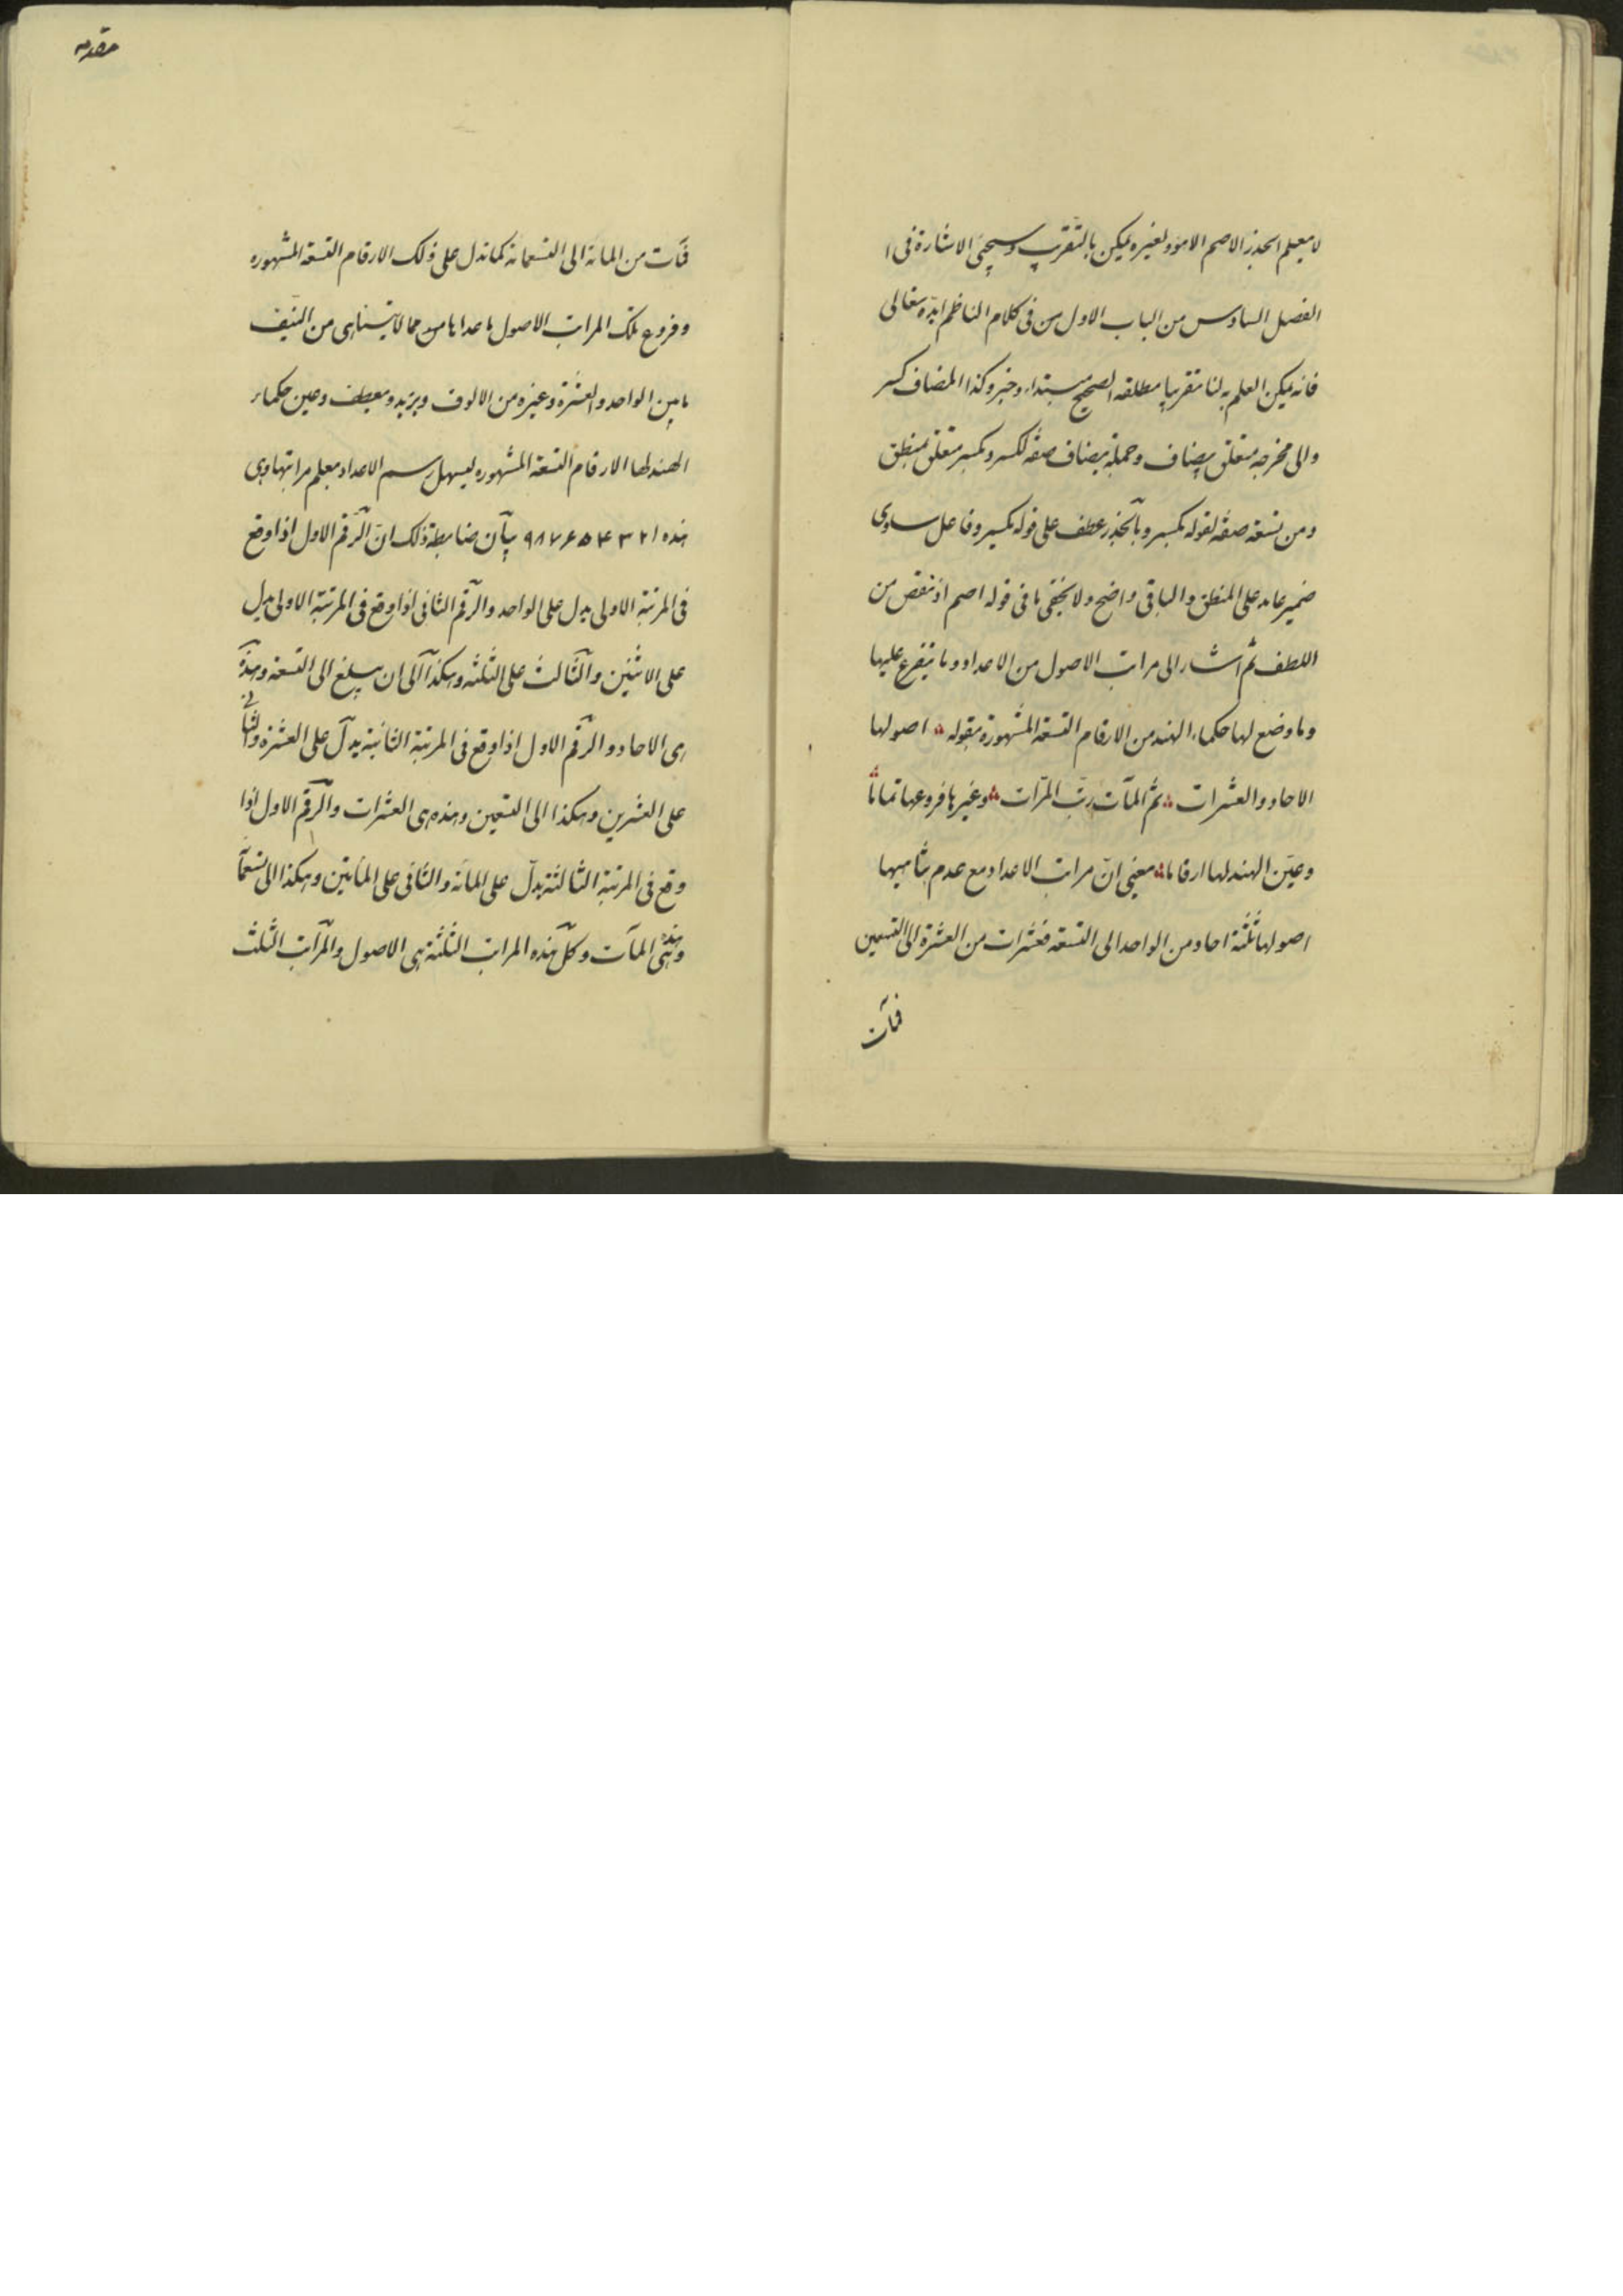 لا يعلم الجذر الاصم الا هو ولغيره يمكن بالتقريب وسيجئ الاشارة فى ا
الفصل السادس من الباب الاول من فى كلام الناظم ايده تعالى
فانه يمكن العلم به لنا تقريبا مطلقه الصحيح مبتداء وخبر وكذا المضاف كسر
والى مخرجه متعلق بيضاف وجملة يضاف صفة لكسر وبكسر متعلق بمنطق
ومن تسعة صفة لقوله بكسر وبالجذر عطف على قوله بكسر وفاعل ساوى
ضمير عايد على المنطق والباقى واضح ولا يخفى ما فى قوله اصم اذ نقص من
اللطف ثم اشار الى مراتب الاصول من الاعداد وما يتفرع عليها
وما وضع لها حكماء الهند من الارقام التسعة المشهورة بقوله اصولها
الاحاد والعشرات ثم المآت رتب المرات وغيرها فروعها تماتا
وعيّن الهند لها ارقاما يعنى انّ مراتب الاعداد مع عدم تناهيها
اصولها ثلثة احاد من الواحد الى التسعة فعشرات من العشرة الى التسعين
فمآت
مقدمه
فمآت من المائة الى التسعمائة كما تدل على ذلك الارقام التسعة المشهوره
وفروع تلك المراتب الاصول ما عداها مما لا يتناهى من النيّف
ما بين الواحد والعشرة وغيره من الالوف ويزيد ومعطف وعين حكماء
الهند لها الارقام التسعة المشهوره ليسهل رسم الاعداد بعلم مراتبها وهى
هذه ١ ٢ ٣ ۴ ۵ ۶ ٧ ٨ ٩ بيان ضابطة ذلك انّ الرّقم الاول اذا وقع
فى المرتبة الاولى يدل على الواحد والرقم الثانى اذا وقع فى المرتبة الاولى يدل
على الاثنين والثالث على الثلثه وهكذا الى ان يبلغ الى التسعة وهذه
هى الاحاد والرقم الاول اذا وقع فى المرتبة الثانية يدلّ على العشرة والثانى
على العشرين وهكذا الى التسعين وهذه هى العشرات والرقم الاول اذا
وقع فى المرتبة الثالثة يدلّ على المائة والثانى على المأتين وهكذا الى تسعمآ
وهذه هى المآت وكلّ هذه المراتب الثلثة هى الاصول والمراتب الثلث